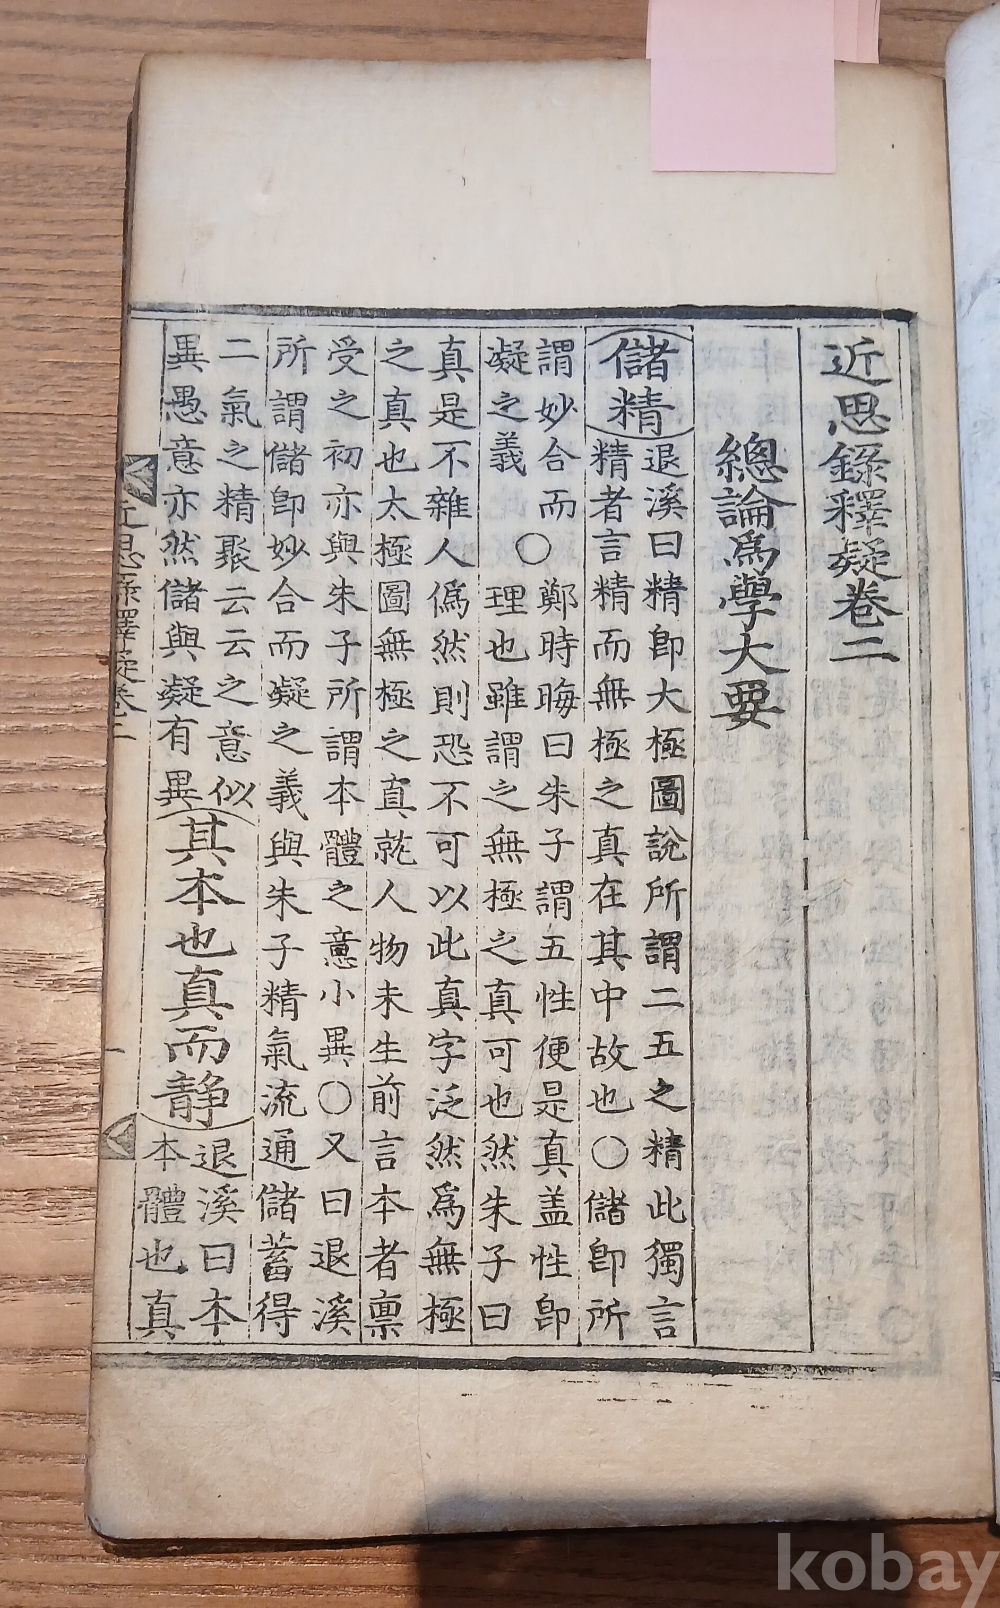 近思錄釋疑卷二
總論爲學大要
儲精
退溪曰精卽大極圖說所謂二五之精此獨言
精者言精而無極之真在其中故也〇儲卽所
謂妙合而
凝之義
〇
鄭時晦曰朱子謂五性便是真盖性卽
理也雖謂之無極之真可也然朱子曰
真是不雜人僞然則恐不可以此真字泛然爲無極
之真也太極圖無極之真就人物未生前言本者禀
受之初亦與朱子所謂本體之意小異〇又曰退溪
所謂儲卽妙合而凝之義與朱子精氣流通儲蓄得
二氣之精聚云云之意似
異愚意亦然儲與凝有異
其本也真而静
退溪曰本
本體也真
近思錄釋疑卷二
一
kobay